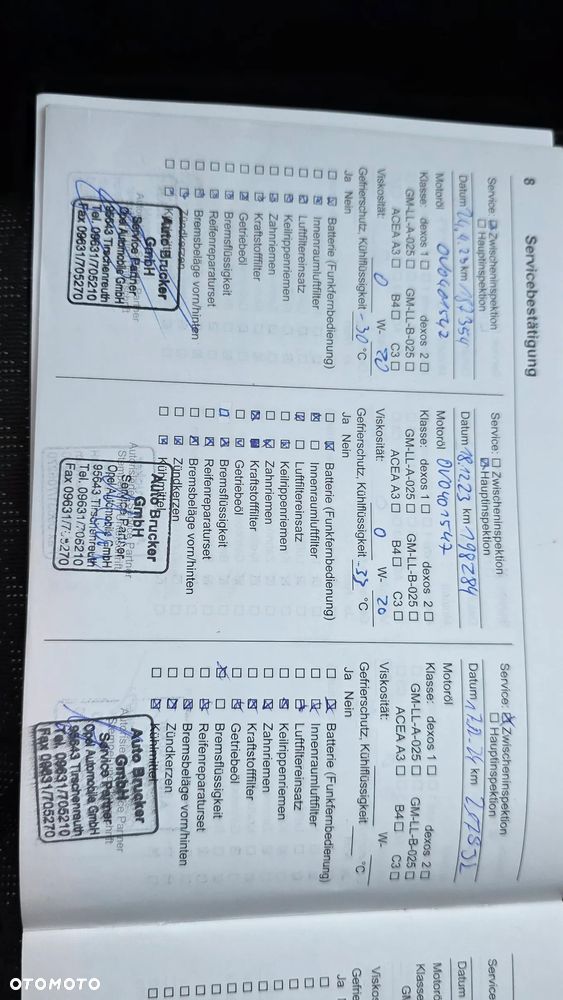 8
Servicebestätigung
Service: ☒ Zwischeninspektion
☐ Hauptinspektion
Datum 24.1.23 km 187354
Motoröl OV0401547
Klasse: dexos 1 ☐ dexos 2 ☐
GM-LL-A-025 ☐ GM-LL-B-025 ☐
ACEA A3 ☐ B4 ☐ C3 ☐
Viskosität: 0 W- 20
Gefrierschutz, Kühlflüssigkeit -30 °C
Ja Nein
☐ ☒ Batterie (Funkfernbedienung)
Innenraumluftfilter
Luftfiltereinsatz
Keilrippenriemen
Zahnriemen
Kraftstofffilter
Getriebeöl
Bremsflüssigkeit
Reifenreparaturset
Bremsbeläge vorn/hinten
Zündkerzen
Auto Brucker
GmbH
Service Partner
Opel Automobile GmbH
95643 Tirschenreuth
Tel. 09631/705210
Fax 09631/705270
Service: ☐ Zwischeninspektion
☒ Hauptinspektion
Datum 18.12.23 km 198284
Motoröl OV0401547
Klasse: dexos 1 ☐ dexos 2 ☐
GM-LL-A-025 ☐ GM-LL-B-025 ☐
ACEA A3 ☐ B4 ☐ C3 ☐
Viskosität: 0 W- 20
Gefrierschutz, Kühlflüssigkeit -37 °C
Ja Nein
☐ ☒ Batterie (Funkfernbedienung)
Innenraumluftfilter
Luftfiltereinsatz
Keilrippenriemen
Zahnriemen
Kraftstofffilter
Getriebeöl
Bremsflüssigkeit
Reifenreparaturset
Bremsbeläge vorn/hinten
Zündkerzen
Kühlmittel
Auto Brucker
GmbH
Service Partner
Opel Automobile GmbH
95643 Tirschenreuth
Tel. 09631/705210
Fax 09631/705270
Service: ☒ Zwischeninspektion
☐ Hauptinspektion
Datum km
Motoröl
Klasse: dexos 1 ☐ dexos 2 ☐
GM-LL-A-025 ☐ GM-LL-B-025 ☐
ACEA A3 ☐ B4 ☐ C3 ☐
Viskosität: W-
Gefrierschutz, Kühlflüssigkeit °C
Ja Nein
☐ ☒ Batterie (Funkfernbedienung)
☐ ☒ Innenraumluftfilter
☐ ☒ Luftfiltereinsatz
☐ ☒ Keilrippenriemen
☐ ☒ Zahnriemen
☐ ☒ Kraftstofffilter
☐ ☒ Getriebeöl
☒ ☐ Bremsflüssigkeit
☐ ☒ Reifenreparaturset
☐ ☒ Bremsbeläge vorn/hinten
☐ ☒ Zündkerzen
☐ ☒ Kühlmittel
Auto Brucker
GmbH
Service Partner
Opel Automobile GmbH
95643 Tirschenreuth
Tel. 09631/705210
Fax 09631/705270
Service:
Datum
Motoröl
Klasse:
GM
Viskos
Gefrie
Ja
OTOMOTO